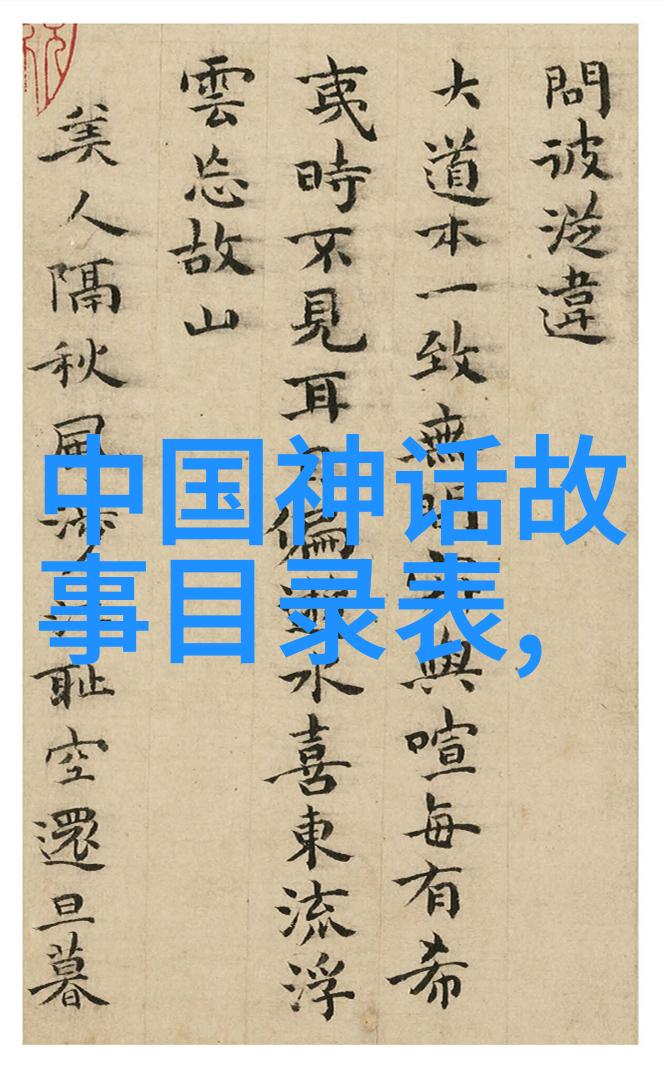 問彼從違
大道本一致無與喧每有希
夷時不見耳偏水喜東流浮
雲忘故山
美人隔秋風耻空還旦暮
中国神话故
事目录表,